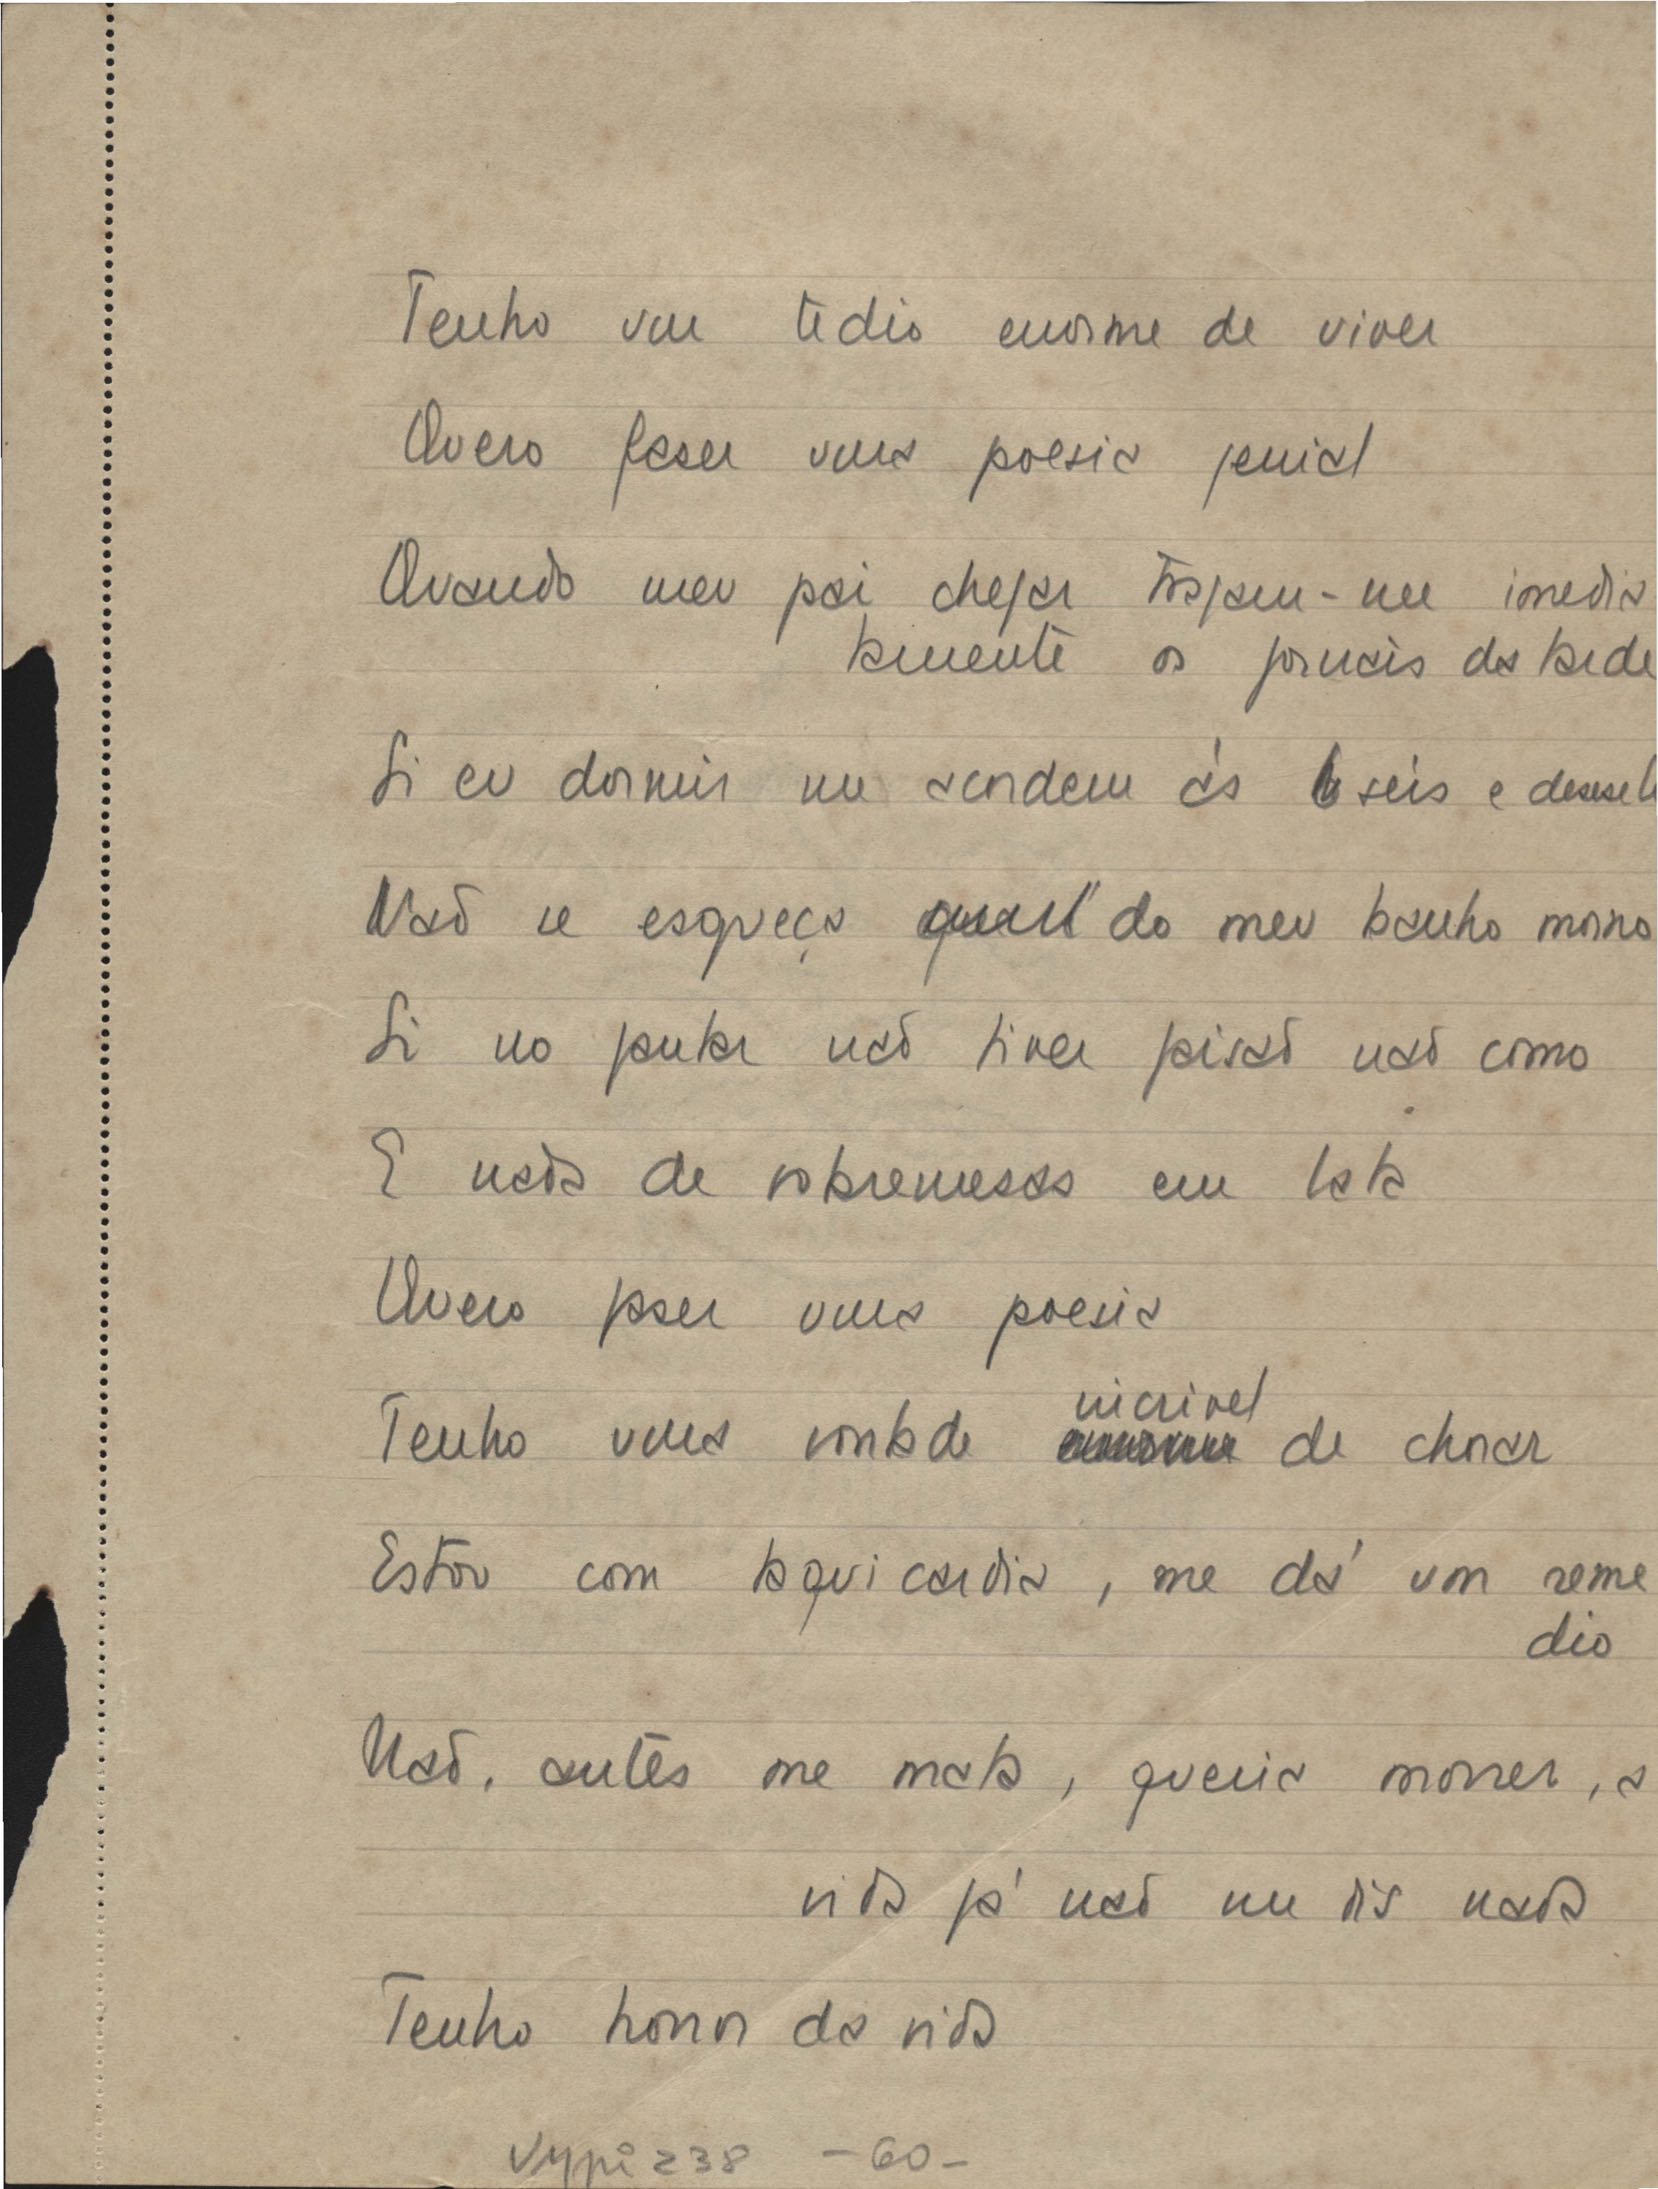 Tenho um tedio enorme de viver
Quero faser uma poesia genial
Quando meu pai chegar tragam-me imedia
tamente os jornais da tarde
Si eu dormir me acordem ás seis e
Não se esqueça do meu banho morno
Si no jantar não tiver pirão não como
E nada de sobremesas em lata
Quero faser uma poesia
incrivel
Tenho uma vontade de chorar
Estou com taquicardia, me dá um reme
dio
Não, antes me mata, queria morrer, a
vida já não me diz nada
Tenho horror da vida
Vypi 238 -60-